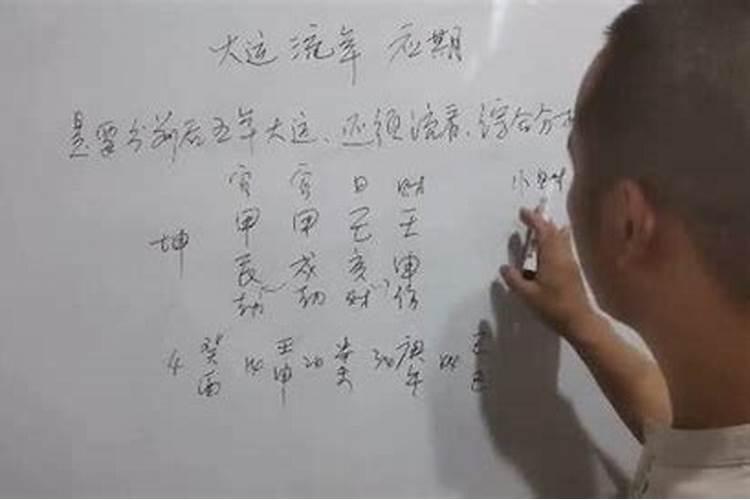 大运 流年 应期
是要分前后五年大运、还须流看、综合分
官 官 日 财
甲 甲 己 壬
坤
辰 戌 亥 申
劫 劫 财 伤
4 癸 14 壬 24 辛 34 庚 44 己
酉 申 未 午 巳